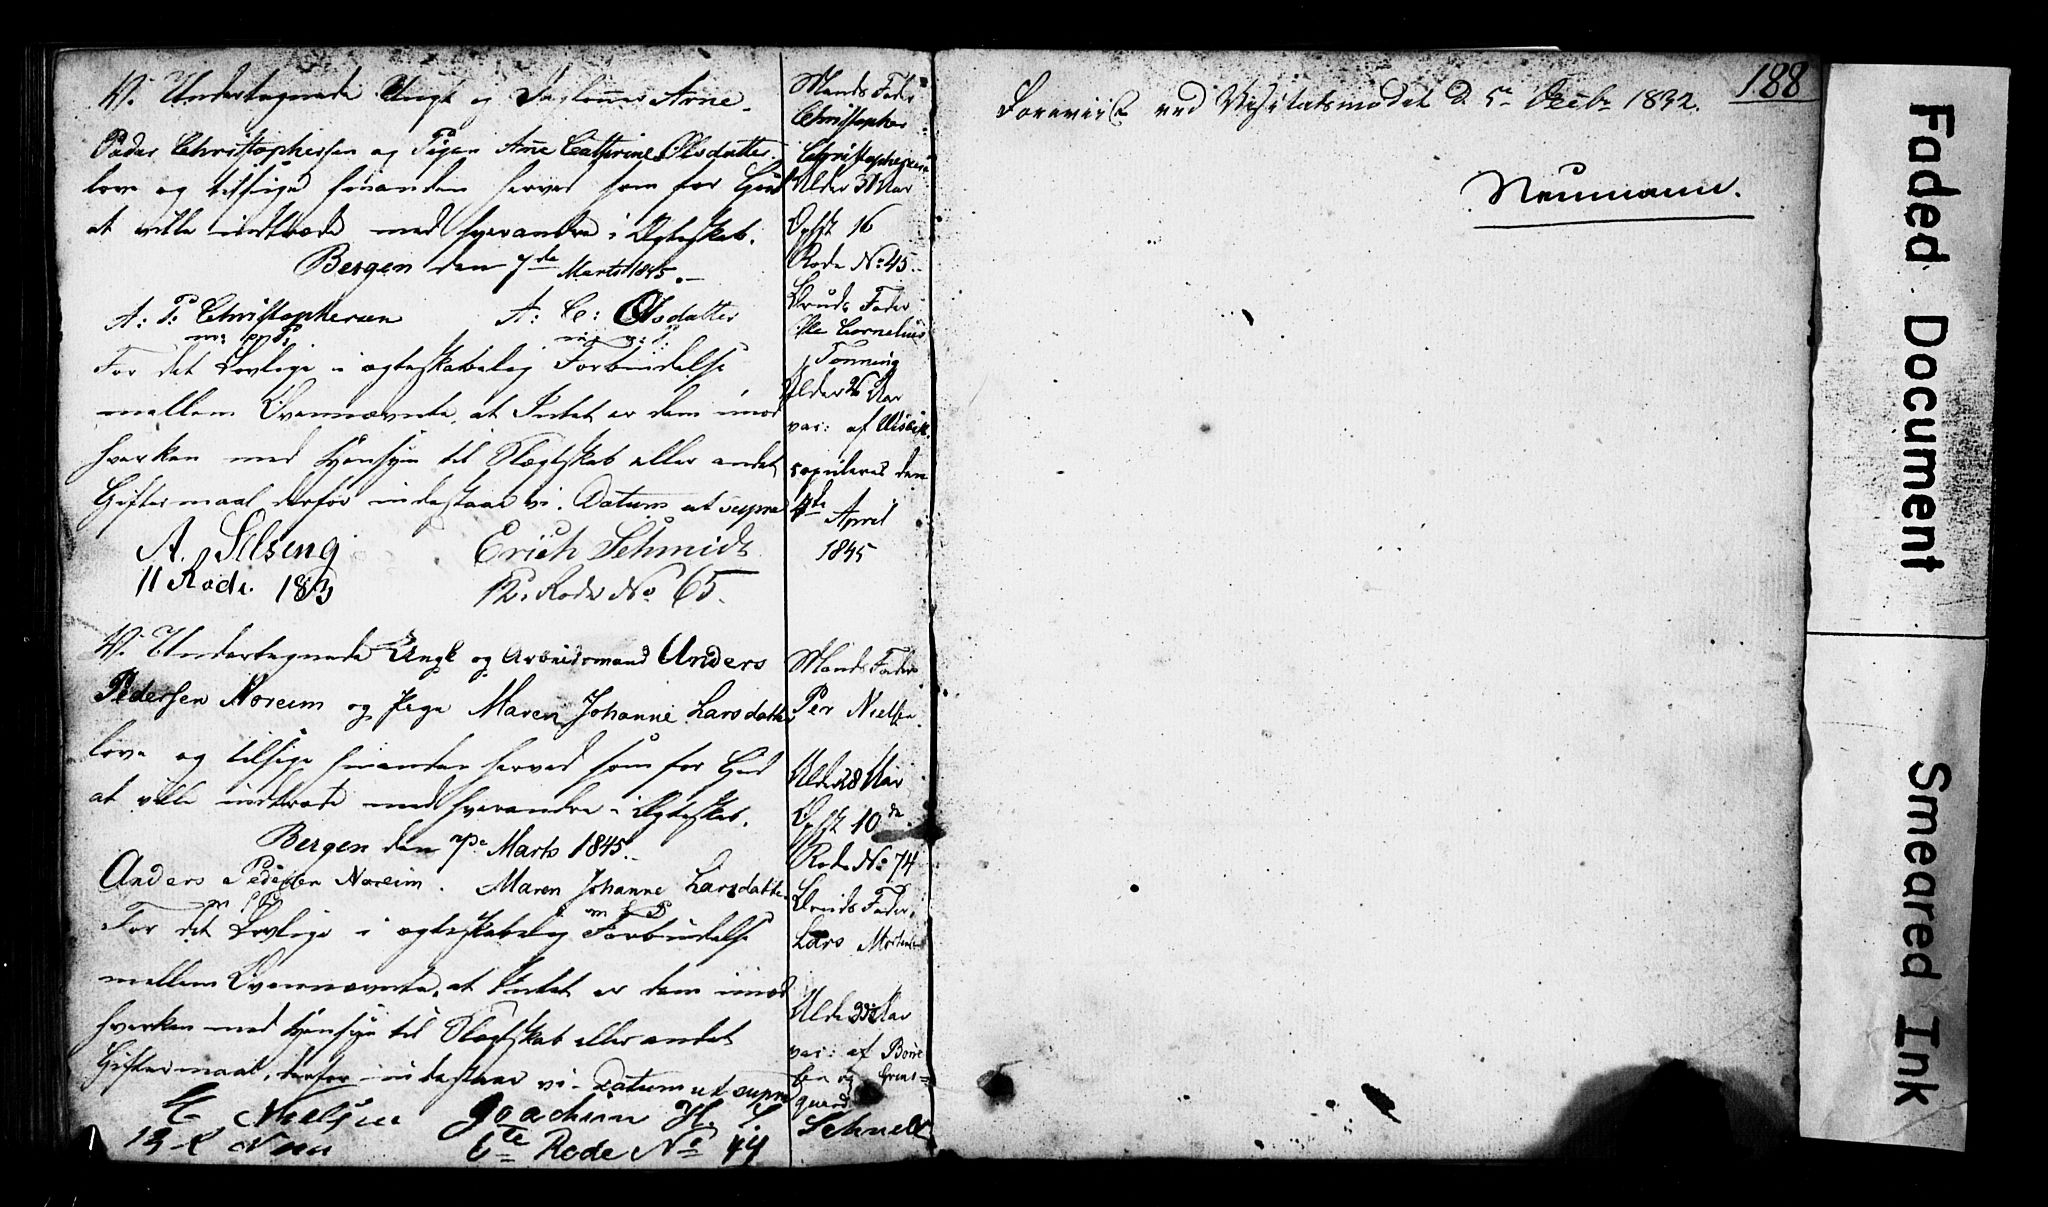 Vi Undertegnede Ungk og Dagløner Arne
Peder Christophersen og Pigen Ane Cathrine Olsdatter
love og tilsige hinanden herved som for Gud
at ville indtræde med hverandre i Ægteskab.
Bergen den 7de Marts 1845.
A: P: Christophersen A: C: Olsdatter
m: p: P:
For det Lovlige i ægteskabelig Forbindelse
mellem Ovennævnte, at Intet er dem imod
hverken med Hensyn til Slægtskab eller andet
Giftermaal derfor indestaae vi. Datum ut supra
A. Selseng Erich Schmidt
11 Rode. 183 12. Rode No 65.
Vi Undertegnede Ungk og Arbeidsmand Anders
Pedersen Noreim og Pige Maren Johanne Larsdatter
love og tilsige hinanden herved som for Gud
at ville indtræde med hverandre i Ægteskab.
Bergen den Marts 1845.
Anders Pedersen Noreim. Maren Johanne Larsdatter
m f P
For det Lovlige i ægteskabelig Forbindelse
mellem Ovennævnte, at Intet er dem imod
hverken med Hensyn til Slægtskab eller andet
Giftermaal, derfor indestaae vi. Datum ut supra
Nielsen Joachim H. S.
6te Rode No 44
Mands Fader
Christopher
Christophersen
Alder 31 Aar
Opfst 16
Rode No 45.
Bruds Fader
Ole Cornelius
Tonning
Alder 26 Aar
vac: af
copuleres den
4de April
1845
Mands Fader
Per Nielsen
Alder 28 Aar
Opfst 10de
Rode No 74
Bruds Fader
Lars
Alder Aar
vac: af
og
Schnell
188
Foreviist ved Visitatsmødet d 5te Octbr 1832.
Neumann.
Faded Document
Smeared Ink